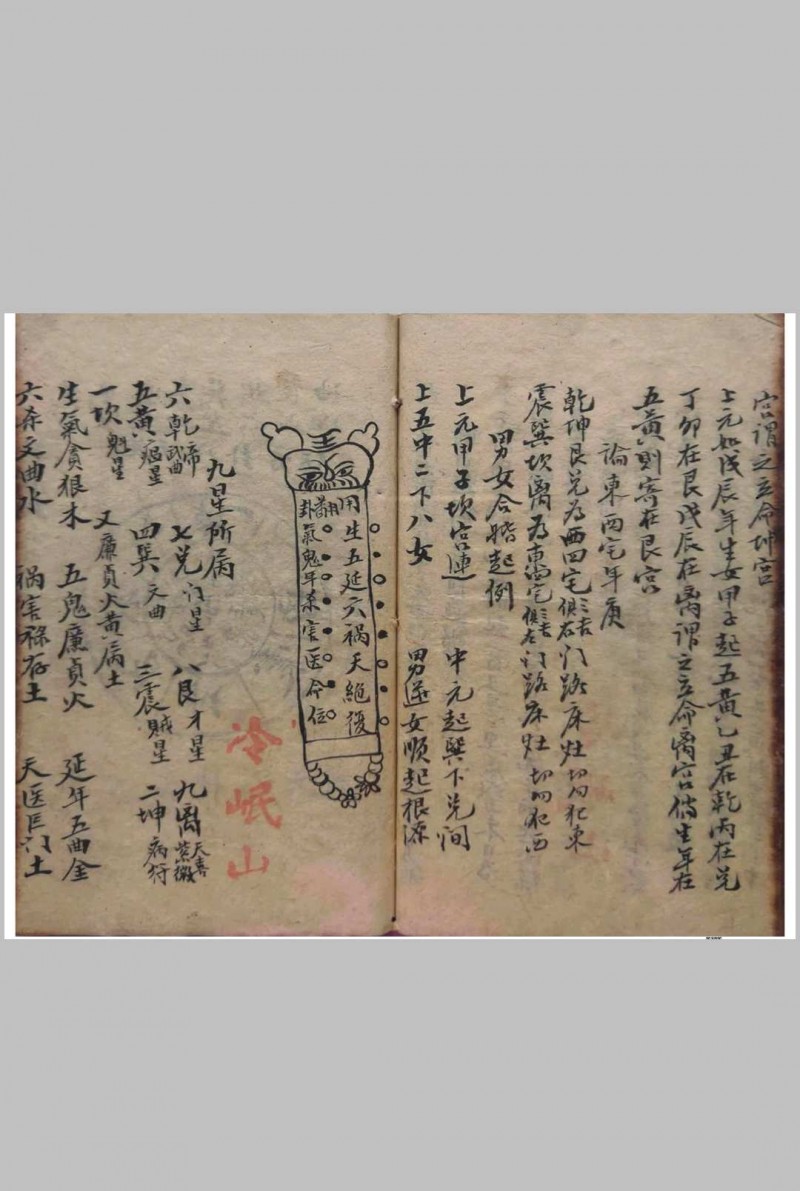 宫谓之立命坤宫
上元如戊辰年生女甲子起五黄乙丑在乾丙在兑
丁卯在艮戊辰在离谓之立命离宫倘生年在
五黄则寄在艮宫
論東西宅年庚
乾坤艮兑為西四宅俱右门路床灶切勿犯東
震巽坎离為東四宅俱右门路床灶切勿犯西
男女合婚起例
上元甲子坎宫連 中元起巽下兑间
上五中二下八女 男逆女順起根源
王
用
卦
生五延六禍天絶復
氣鬼年杀害医命位
九星所属
六乾武曲 七兑 八艮才星 九离天喜紫微
五黄瘟星 四巽文曲 三震贼星 二坤病符
一坎魁星 又廉貞火黄病土
生氣貪狼木 五鬼廉貞火 延年五曲金
六杀文曲水 禍害禄存土 天医巨门土
冷岷山